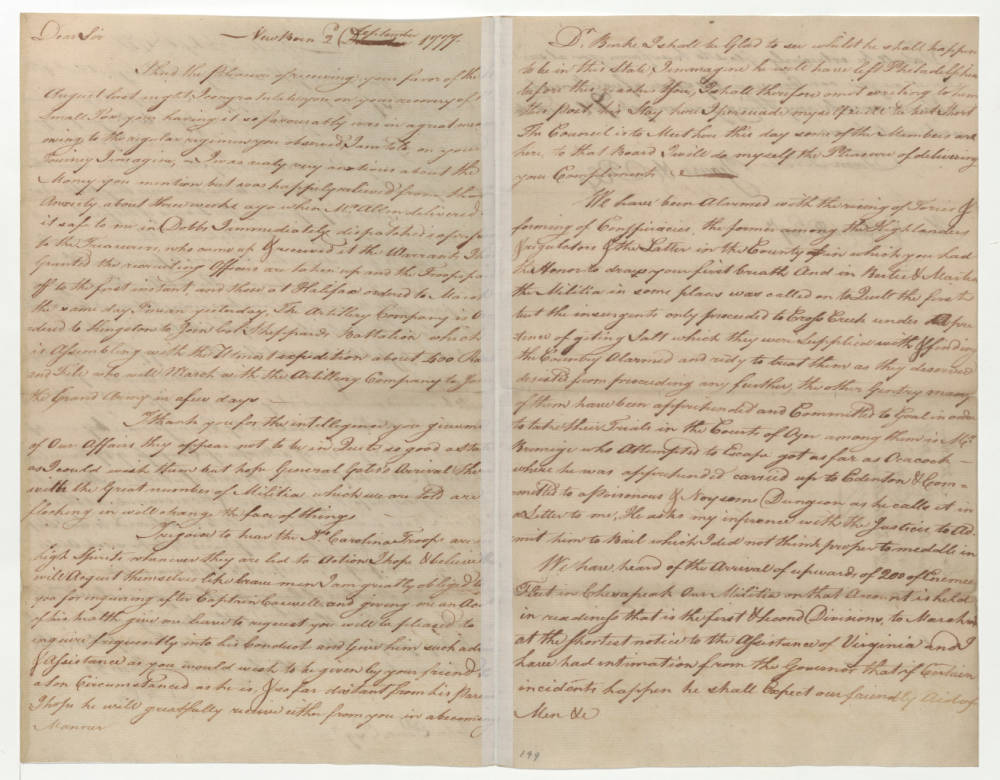 Dear Sir — New Bern 2d September 1777.
I had the Pleasure of receiving your favor of the
August last night I congratulate you on your recovery of
Small Pox your having it so favourably was in a great
owing to the regular regimen you observed I on your
Journey I immagine, I was realy very anxious about the
Money you mention but was happily relieved from
Anxiety about three weeks ago when Mr. Allen delivered
it safe to me in Dobbs I immediately dispatched
to the Treasurer, who came up & received it the Warrants
granted the recruiting Officers are taken up and the Troops
off to the first instant, and those at Halifax ordered to March
the same day I mean yesterday, The Artillery Company is
dered to Kingston to Join Col. Sheppards Battalion which
is Assembling with the Utmost expedition about 400
and File who will March with the Artillery Company to
the Grand Army in a few days —
I thank you for the intelligence you give
of Our Affairs they appear not to be in Quite so good a
as I could wish them but hope General Gates's Arrival
with the Great number of Militia which we are told are
flocking in will change the face of things
I rejoice to hear the No. Carolina Troops are
high Spirits whenever they are led to Action I hope & believe
will Acquit themselves like brave men I am greatly obliged
you for inquiring after Captain Caswell and giving me an
of his health give me leave to request you will be pleased to
inquire frequently into his Conduct and Give him such
& Assistance as you would wish to be given by your friend
a son Circumstanced as he is, & so far distant from his
I hope he will greatfully receive either from you in a becoming
Manner
Dr. Burke I shall be Glad to see whilst he shall happen
to be in this State, I immagine he will have left Philadelphia
before this reaches you, I shall therefore omit writing to him
this post, his Stay here I persuade myself will be but Short
The Council is to Meet here this day some of the Members are
here, to that Board I will do myself the Pleasure of delivering
your Compliments
We have been Alarmed with the rising of Tories &
forming of Conspiracies, the former among the Highlanders
& regulators & the Latter in the County in which you had
the Honor to draw your first breath And in Bertie & Martin
the Militia in some places was called on to Quell the first
but the insurgents only proceeded to Cross Creek under pre
tence of geting Salt which they were Supplied with & finding
the Country Alarmed and redy to treat them as they deserved
desisted from proceeding any further, the other Gentry many
of them have been apprehended and Committed to Goal in order
to take their Trials in the Courts of Oyer among them is Mr.
Brimige who Attempted to Escape got as far as Ocracock —
where he was apprehended carried up to Edenton & Com=
mitted to a Poisonous & Noysome Dungeon as he calls it in
a Letter to me, He asks my inference with the Justices to Ad
mit him to Bail which I did not think proper to meddle in
We have, heard of the Arrival of upwards of 200 of Enemies
Fleet in Chesapeak Our Militia on that Account is held
in readeness that is the first & Second Divisions, to March
at the Shortest notice to the Assistance of Virginia and I
have had intimation from the Governor that if Certain
incidents happen he shall Expect our friendly Aid of
Men &c
199